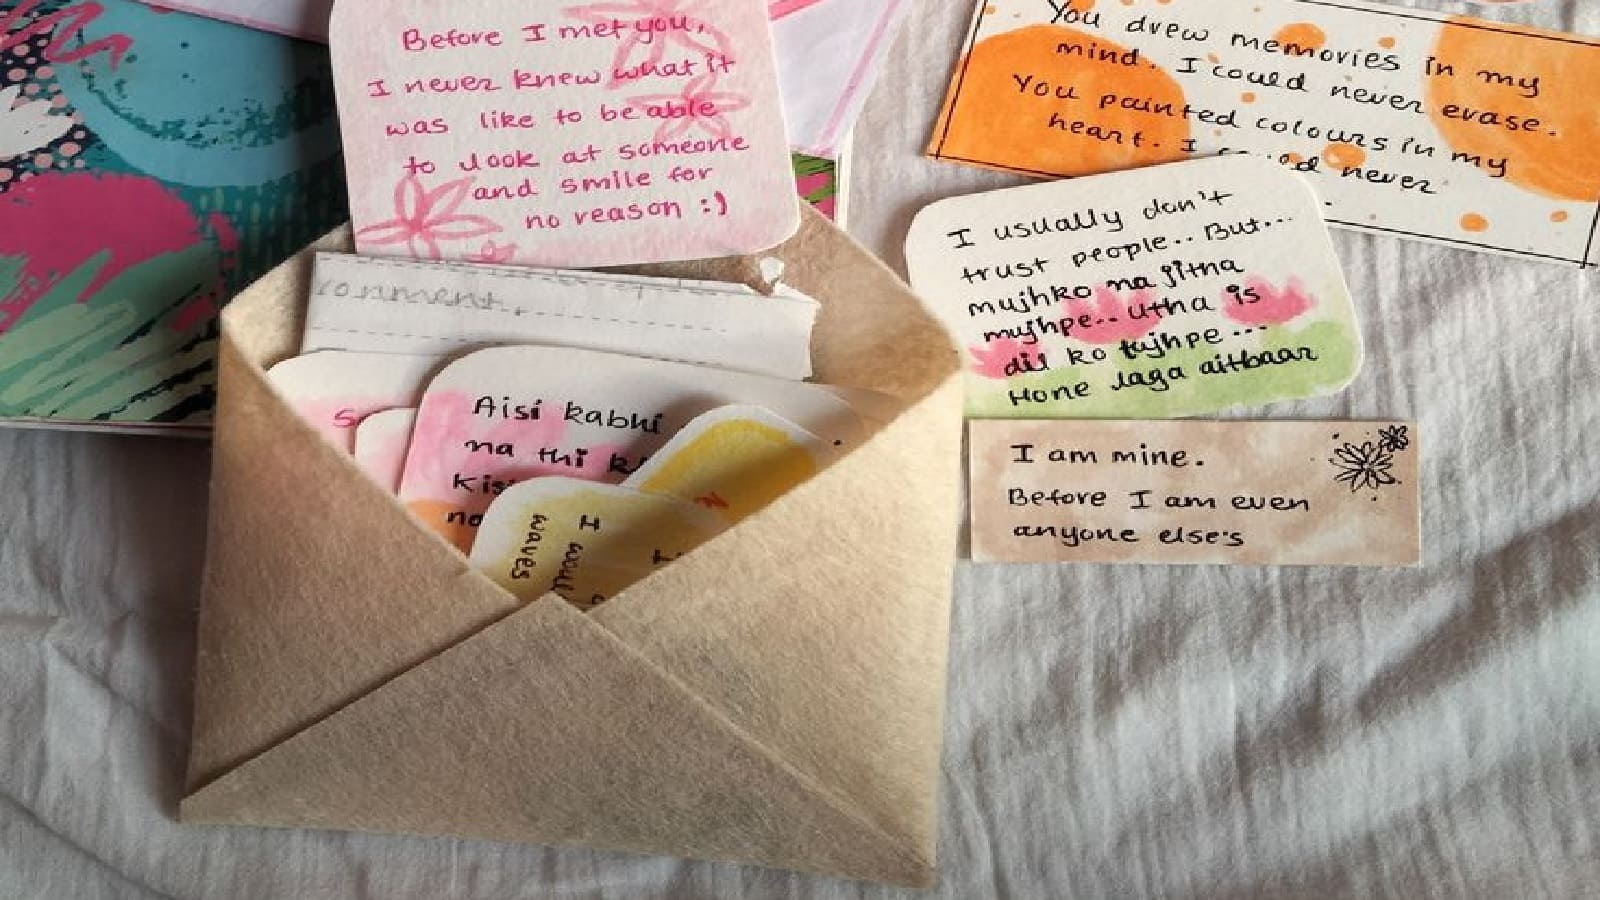 Before I met you,
I never knew what it
was like to be able
to look at someone
and smile for
no reason :)
You drew memories in my
mind. I could never erase.
You painted colours in my
heart. I never
I usually don't
trust people.. But...
mujhko na jitna
mujhpe.. utha is
dil ko tujhpe ...
Hone laga aitbaar
I am mine.
Before I am even
anyone else's
comment.
Aisi kabhi
na thi
I
waves